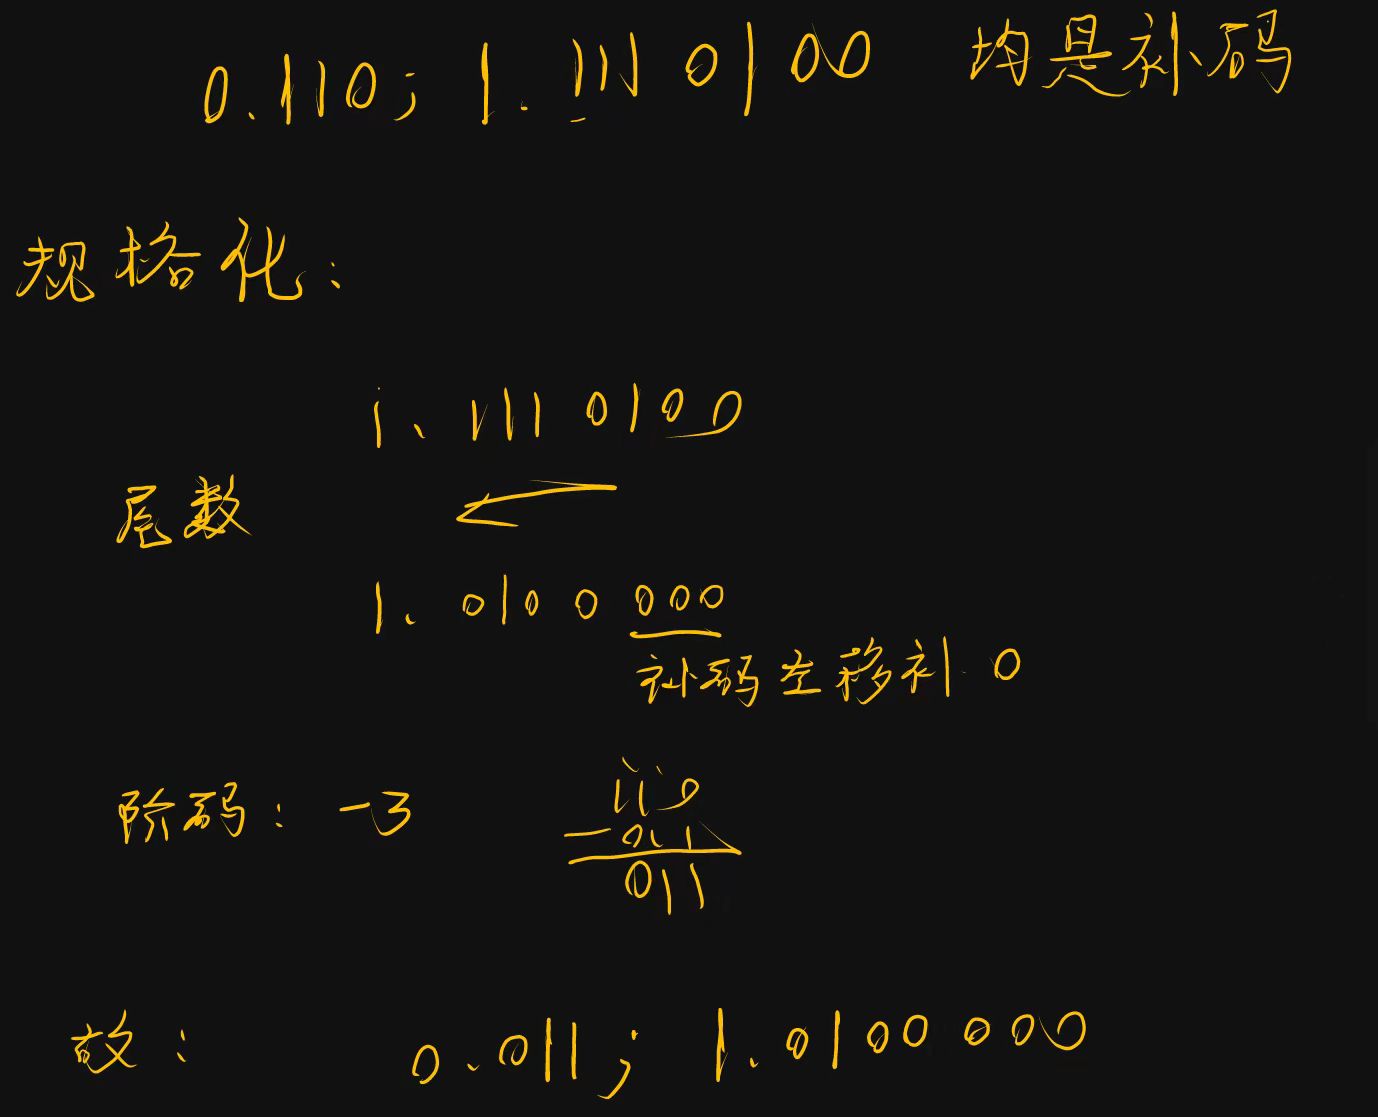 0.110; 1.1110100 均是补码
规格化:
1.1110100
尾数
1.0100000
补码左移补0
阶码: -3
110
-011
011
故: 0.011; 1.0100000